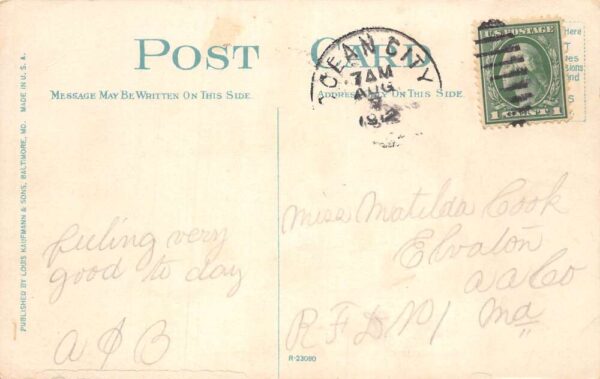 POST CARD
MESSAGE MAY BE WRITTEN ON THIS SIDE
ADDRESS ONLY ON THIS SIDE
PUBLISHED BY LOUIS KAUFMANN & SONS, BALTIMORE, MD. MADE IN U. S. A.
OCEAN CITY
7 AM
AUG
1912
U.S. POSTAGE
1 CENT
Here
feeling very
good to day
A & B
Miss Matilda Cook
Elvaton
A A Co
R F D No 1 Md
R-23080